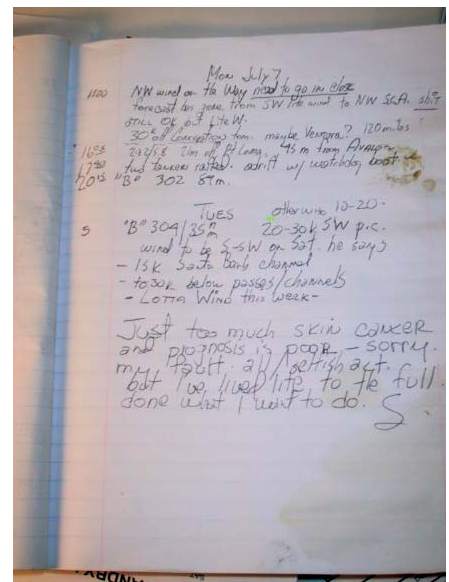 Mon July 7
1500 NW wind on the way need to go in close
forecast has gone from SW lite wind to NW SCA. shit
STILL OK but Lite W.
30° off Conception tom. maybe Ventura? 120 miles!
off Pt Long. 45 m from Avalon
two tankers rafted. adrift w/ watchdog boat
2015 "B" 302 87m.
TUES otherwise 10-20.
5 "B" 304/35m 20-30k SW p.c.
wind to be S-SW on Sat. he says
- 15k Santa Barb channel
- to 30k below passes/channels
- LOTTA WIND this week -
Just too much skin cancer
and prognosis is poor - sorry.
my fault. all selfish act.
but I've lived life to the full.
done what I want to do.
S.
ANDBY